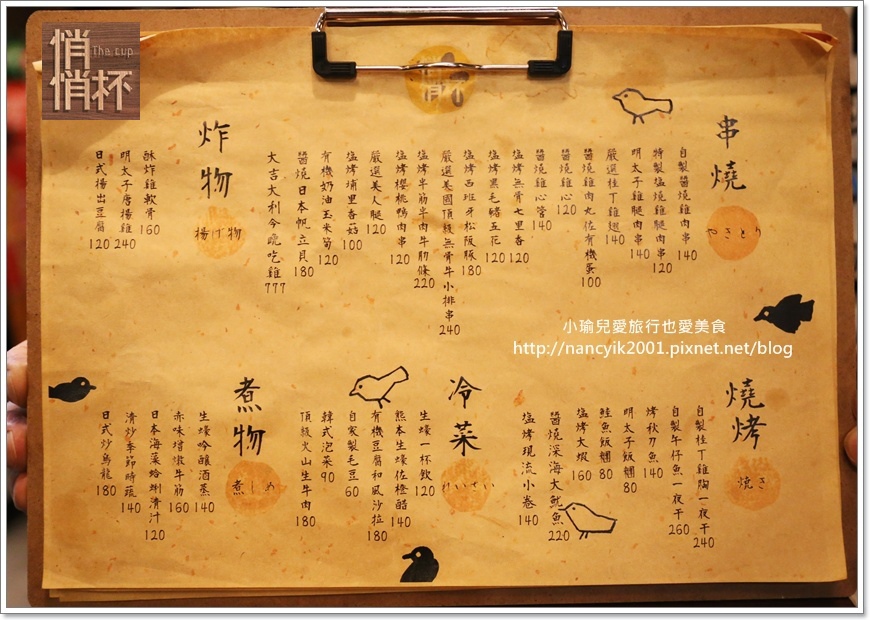 悄悄杯
The cup
串燒
やきとり
自製醬燒雞肉串 140
特製塩燒雞腿肉串 120
明太子雞腿肉串 140
嚴選桂丁雞翅 140
醬燒雞肉丸佐有機蛋 100
醬燒雞心 120
醬燒雞心管 140
塩烤無骨七里香 120
塩烤黑毛豬五花 120
塩烤西班牙松阪豚 180
嚴選美國頂級無骨牛小排串 240
塩烤牛筋半肉牛肋條 220
塩烤櫻桃鴨肉串 120
嚴選美人腿 120
塩烤埔里香菇 100
有機奶油玉米筍 120
醬燒日本帆立貝 180
大吉大利今晚吃雞 777
炸物
揚げ物
酥炸雞軟骨 160
明太子唐揚雞 240
日式揚出豆腐 120
小瑜兒愛旅行也愛美食
http://nancyik2001.pixnet.net/blog
燒烤
焼き
自製桂丁雞胸一夜干 240
自製午仔魚一夜干 260
烤秋刀魚 140
明太子飯糰 80
鮭魚飯糰 80
塩烤大蝦 160
醬燒深海大魷魚 220
塩烤現流小卷 140
冷菜
れいせい
生蠔一杯飲 120
熊本生蠔佐橙醋 140
有機豆腐和風沙拉 180
自家製毛豆 60
韓式泡菜 90
頂級火山生牛肉 180
煮物
煮しめ
生蠔吟釀酒蒸 140
赤味增燉牛筋 160
日本海菜蛤蜊清汁 120
清炒季節時蔬 140
日式炒烏龍 180